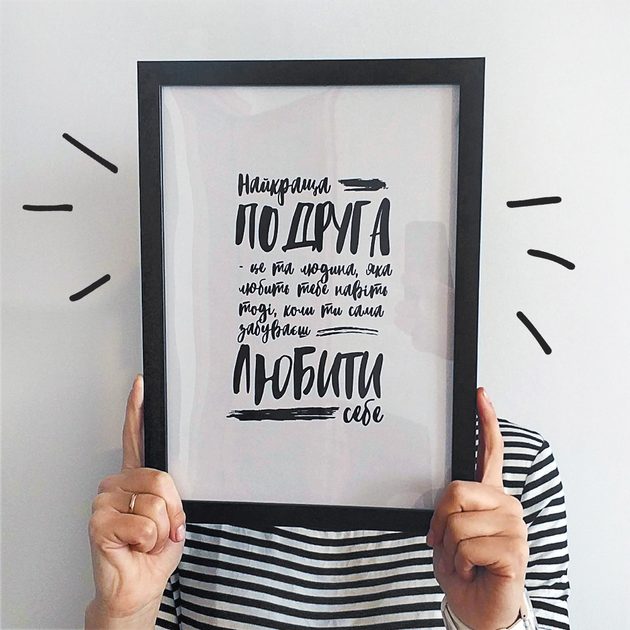 Найкраща
ПОДРУГА
- це та людина, яка
любить тебе навіть
тоді, коли ти сама
забуваєш
ЛЮБИТИ
себе